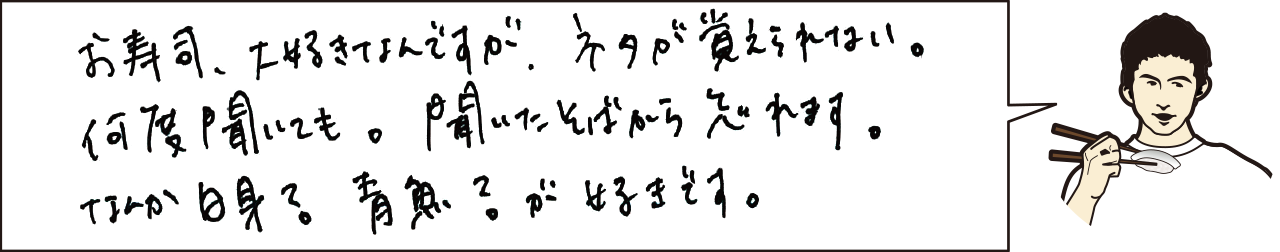 お寿司、大好きなんですが、ネタが覚えられない。
何度聞いても。聞いたそばから忘れます。
なんか白身？青魚？が好きです。